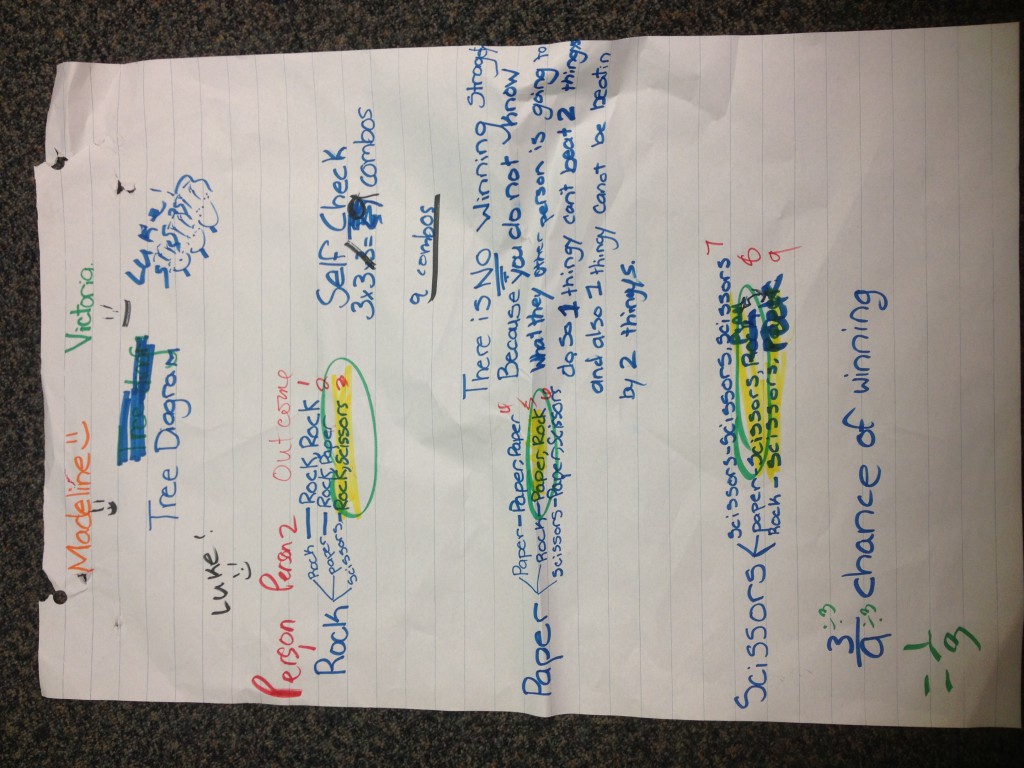 Madeline Victoria
Luke
Tree Diagram
Luke!
Person Person 2 Outcome
Rock Rock — Rock, Rock 1
Paper — Rock, Paper 2
Scissors Rock, Scissors 3
Self Check
3x3 = 9 combos
9 combos
There is NO Winning Strategy
Because you do not know
What they other person is going to
do so 1 thingy can't beat 2 things
and also 1 thingy canot be beatin
by 2 thingys.
Paper Paper – Paper, Paper 4
Rock Paper, Rock
Scissors Paper, Scissors
Scissors Scissors – Scissors, Scissors 7
paper Scissors, paper 8
Rock – Scissors, rock 9
3/9 ÷3 ÷3 chance of winning
= 1/3